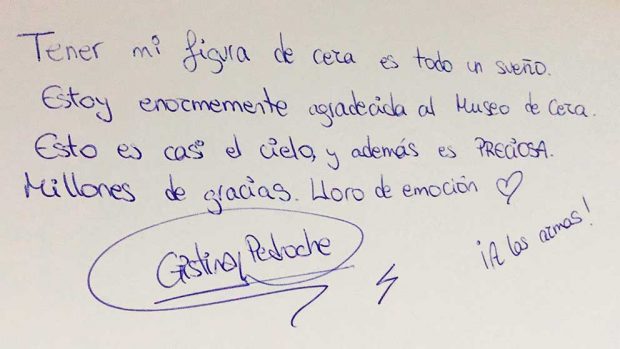 Tener mi figura de cera es todo un sueño.
Estoy enormemente agradecida al Museo de Cera.
Esto es casi el cielo, y además es PRECIOSA.
Millones de gracias. Lloro de emoción ♡
Cristina Pedroche
¡A las armas!